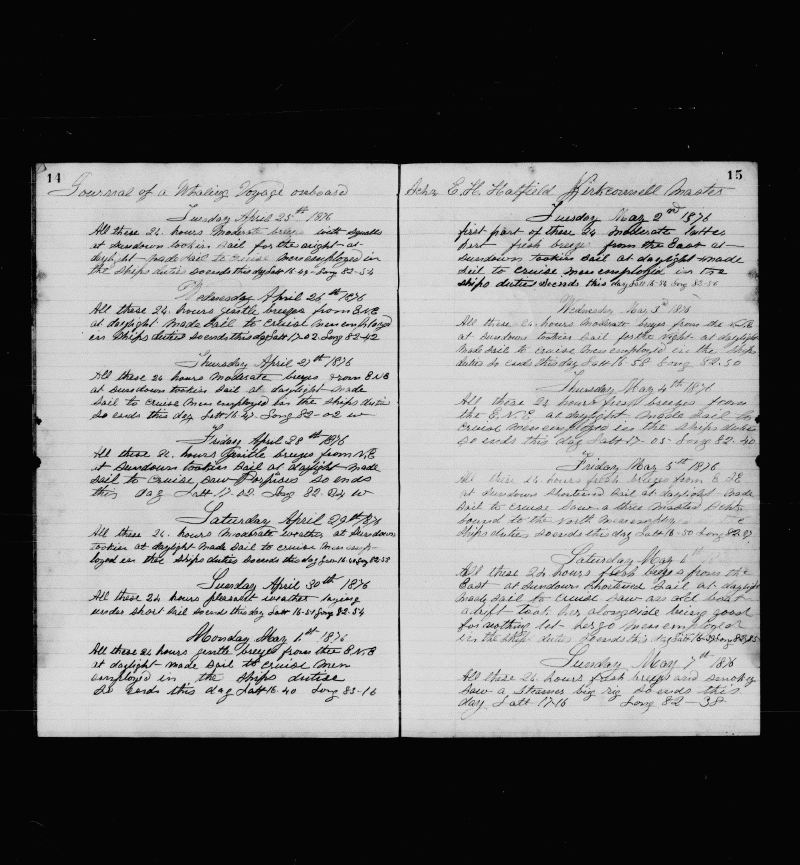 14
Journal of a Whaling Voyage onboard
Tuesday April 25th 1876
All these 24. hours Moderate breeze with squalls
at Sundown tookin Sail for the night at
daylight made sail to cruise Men employed in
the Ships duties so ends this day Latt 16-49 Long 82-54
Wednesday April 26th 1876
All these 24. hours gentle breezes from E.N.E
at daylight Made Sail to Cruise men employed
in Ships duties so ends this day Latt 17-02. Long 82-42
Thursday April 27th 1876
All these 24 hours Moderate breezes from E.N.E
at Sundown tookin Sail at daylight made
Sail to Cruise Men employed in the Ships duties
so ends this day Latt 16-47. Long 82-02 W
Friday April 28th 1876
All these 24. hours Gentle breezes from N.E
at Sundown tookin Sail at daylight made
Sail to Cruise Saw Porpoises so ends
this day Latt 17-02. Long 82-04 W
Saturday April 29th 1876
All these 24. hours Moderate weather at Sundown
tookin at daylight Made Sail to cruise men emp-
loyed in the Ships duties so ends this day Latt 16-40 Long 82-53
Sunday April 30th 1876
All these 24 hours pleasent weather laying
under Short Sail so ends this day Latt 16-51 Long 82-54
Monday May 1st 1876
All these 24 hours gentle breezes from the E.N.E
at daylight made Sail to Cruise Men
employed in the Ships duties
So ends this day Latt 16-40 Long 83-16
15
Schr E.H. Hatfield Kirkconnell Master
Tuesday May 2nd 1876
first part of these 24 moderate latter
part fresh breeze from the East at
Sundown tookin Sail at daylight made
Sail to Cruise men employed in the
Ships duties So ends this day Latt 16-54 Long 82-56
Wednesday May 3d 1876
All these 24. hours Moderate breezes from the N.E
at Sundown tookin Sail for the night at daylight
Made Sail to cruise Men employed in the Ships
duties So ends this day Latt 16-58 Long 82-50
Thursday May 4th 1876
All these 24 hours fresh breezes from
the E.N.E at daylight Made Sail to
Cruise men employed in the Ships duties
so ends this day Latt 17-05 Long 82-40
Friday May 5th 1876
All these 24. hours fresh breezes from E.N.E
at Sundown Shortened Sail at daylight made
Sail to Cruise Saw a three Masted Schr
bound to the north Men employ
Ships duties so ends this day Latt 16-50 Long 82-27
Saturday May 6th
All these 24 hours fresh breezes from the
East at Sundown Shortened Sail at daylight
Made Sail to Cruise Saw an old boat
adrift took her alongside being good
for nothing let her go men employed
in the Ships duties So ends this day Latt 16-59 Long
Sunday May 7th 1876
All these 24. hours fresh breezes and smokey
Saw a Steamer big rig So ends this
day Latt 17-16 Long 82-38